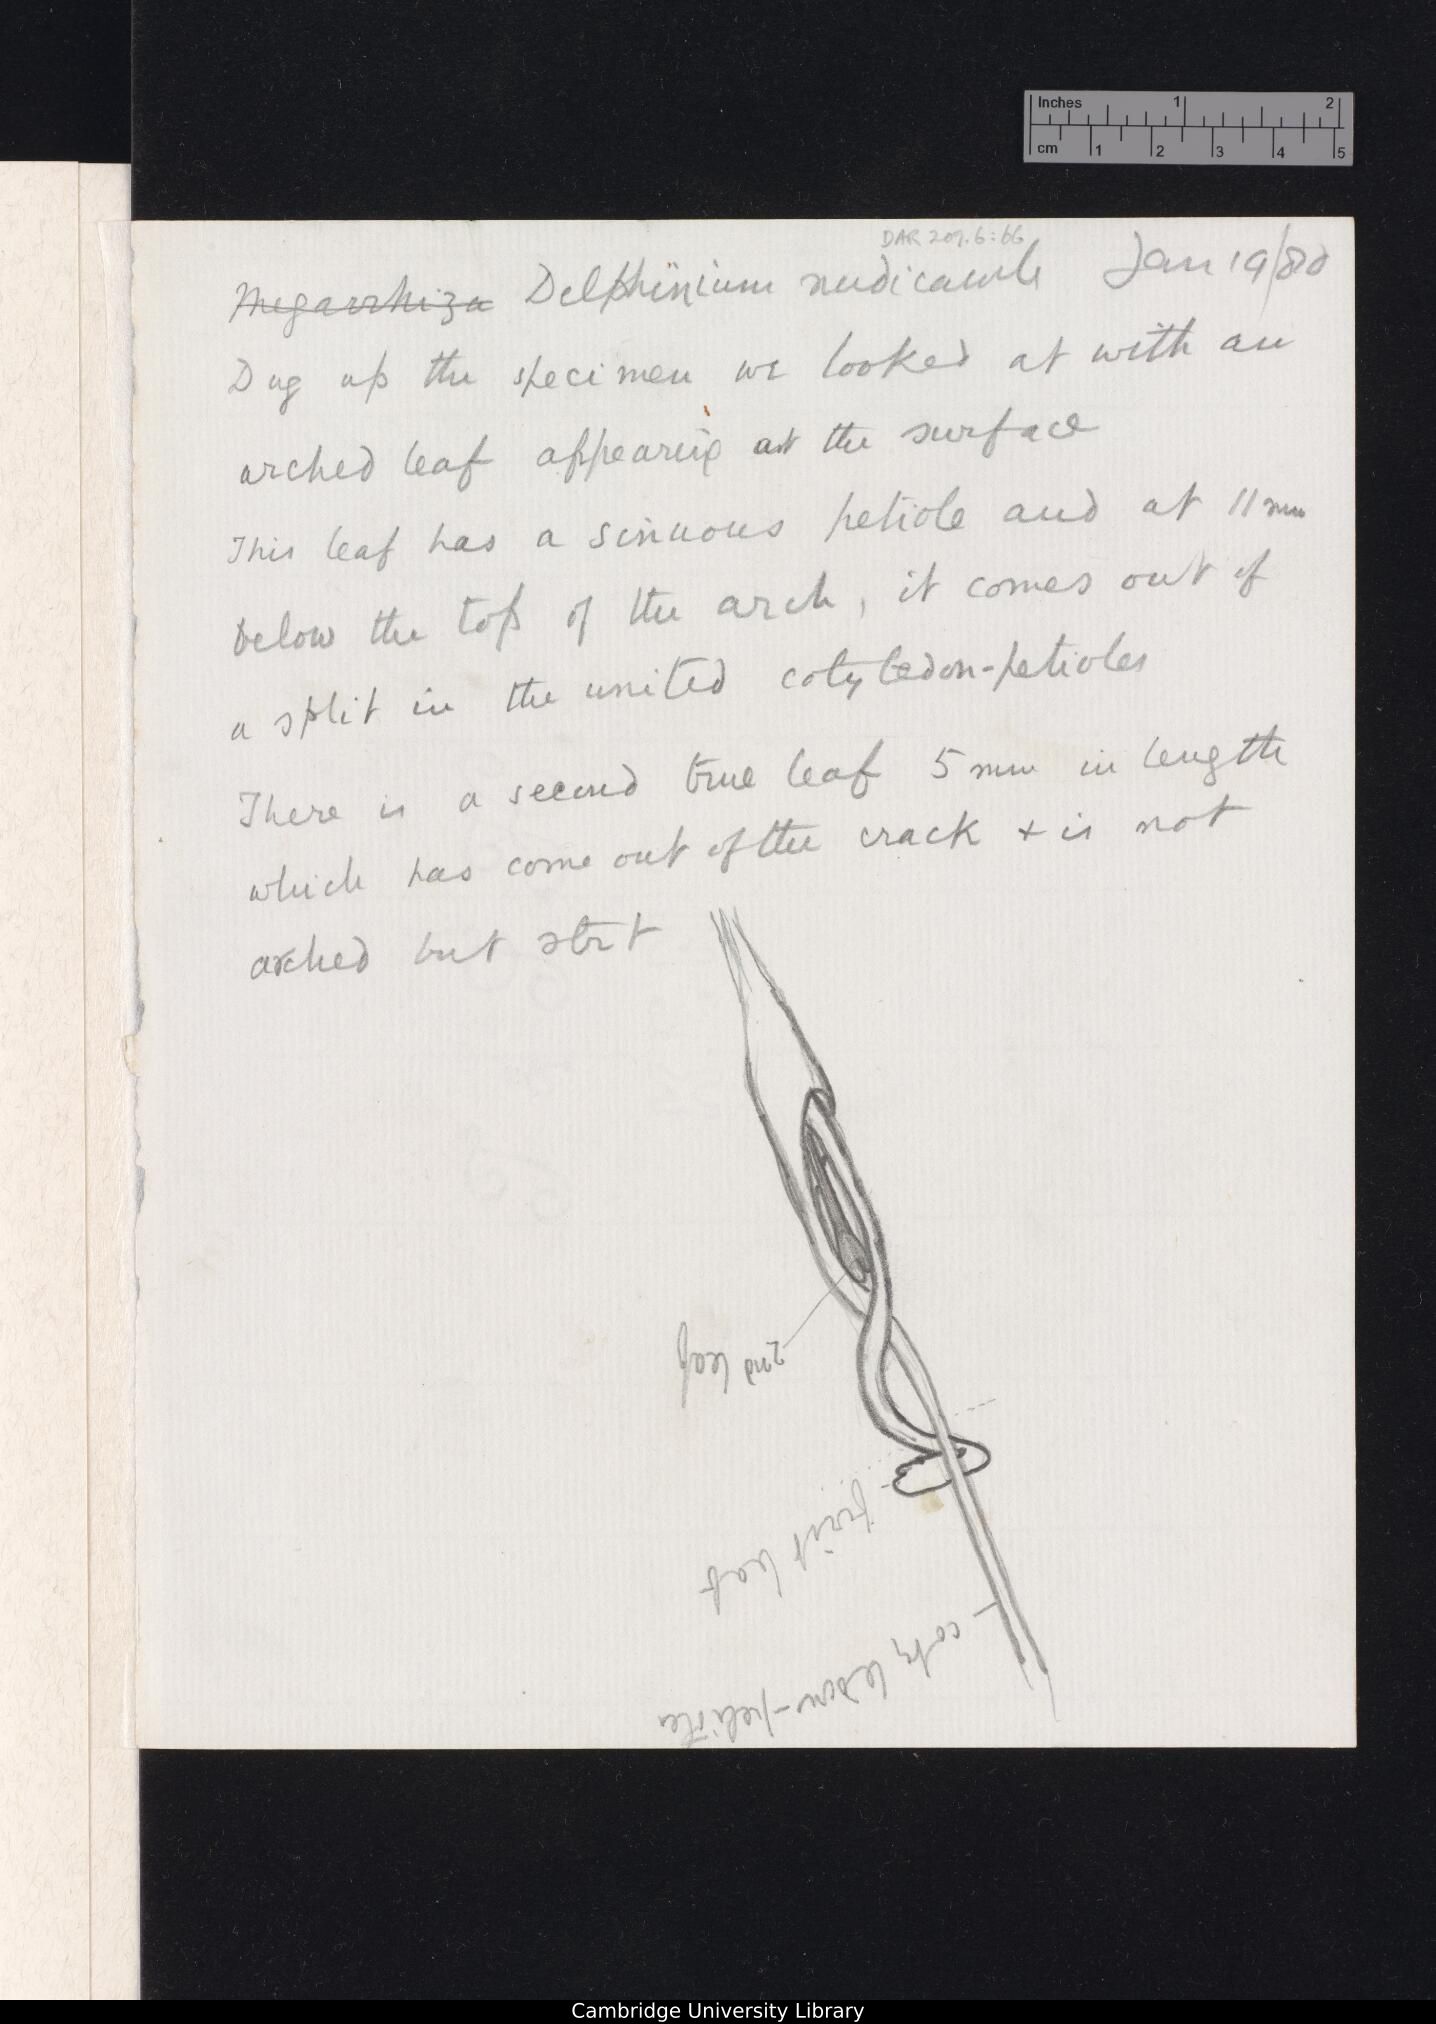 Inches 1 2
cm 1 2 3 4 5
DAR 209.6:66
Megarrhiza Delphinium nudicaule Jan 19/80
Dug up the specimen we looked at with an
arched leaf appearing at the surface
This leaf has a sinuous petiole and at 11 mm
below the top of the arch, it comes out of
a split in the united cotyledon-petioles
There is a second true leaf 5 mm in length
which has come out of the crack + is not
arched but strt
2nd leaf
first leaf
cotyledon-petioles
Cambridge University Library